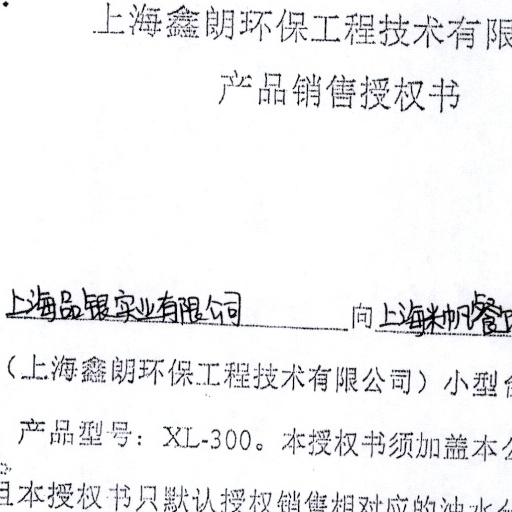 上海鑫朗环保工程技术有限
产品销售授权书
上海品银实业有限公司 向 上海米帆餐
（上海鑫朗环保工程技术有限公司）小型
产品型号：XL-300。本授权书须加盖本公
且本授权书只默认授权销售相对应的油水分